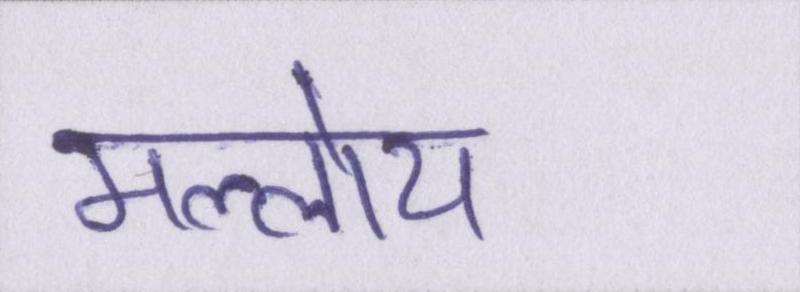 मल्लोय